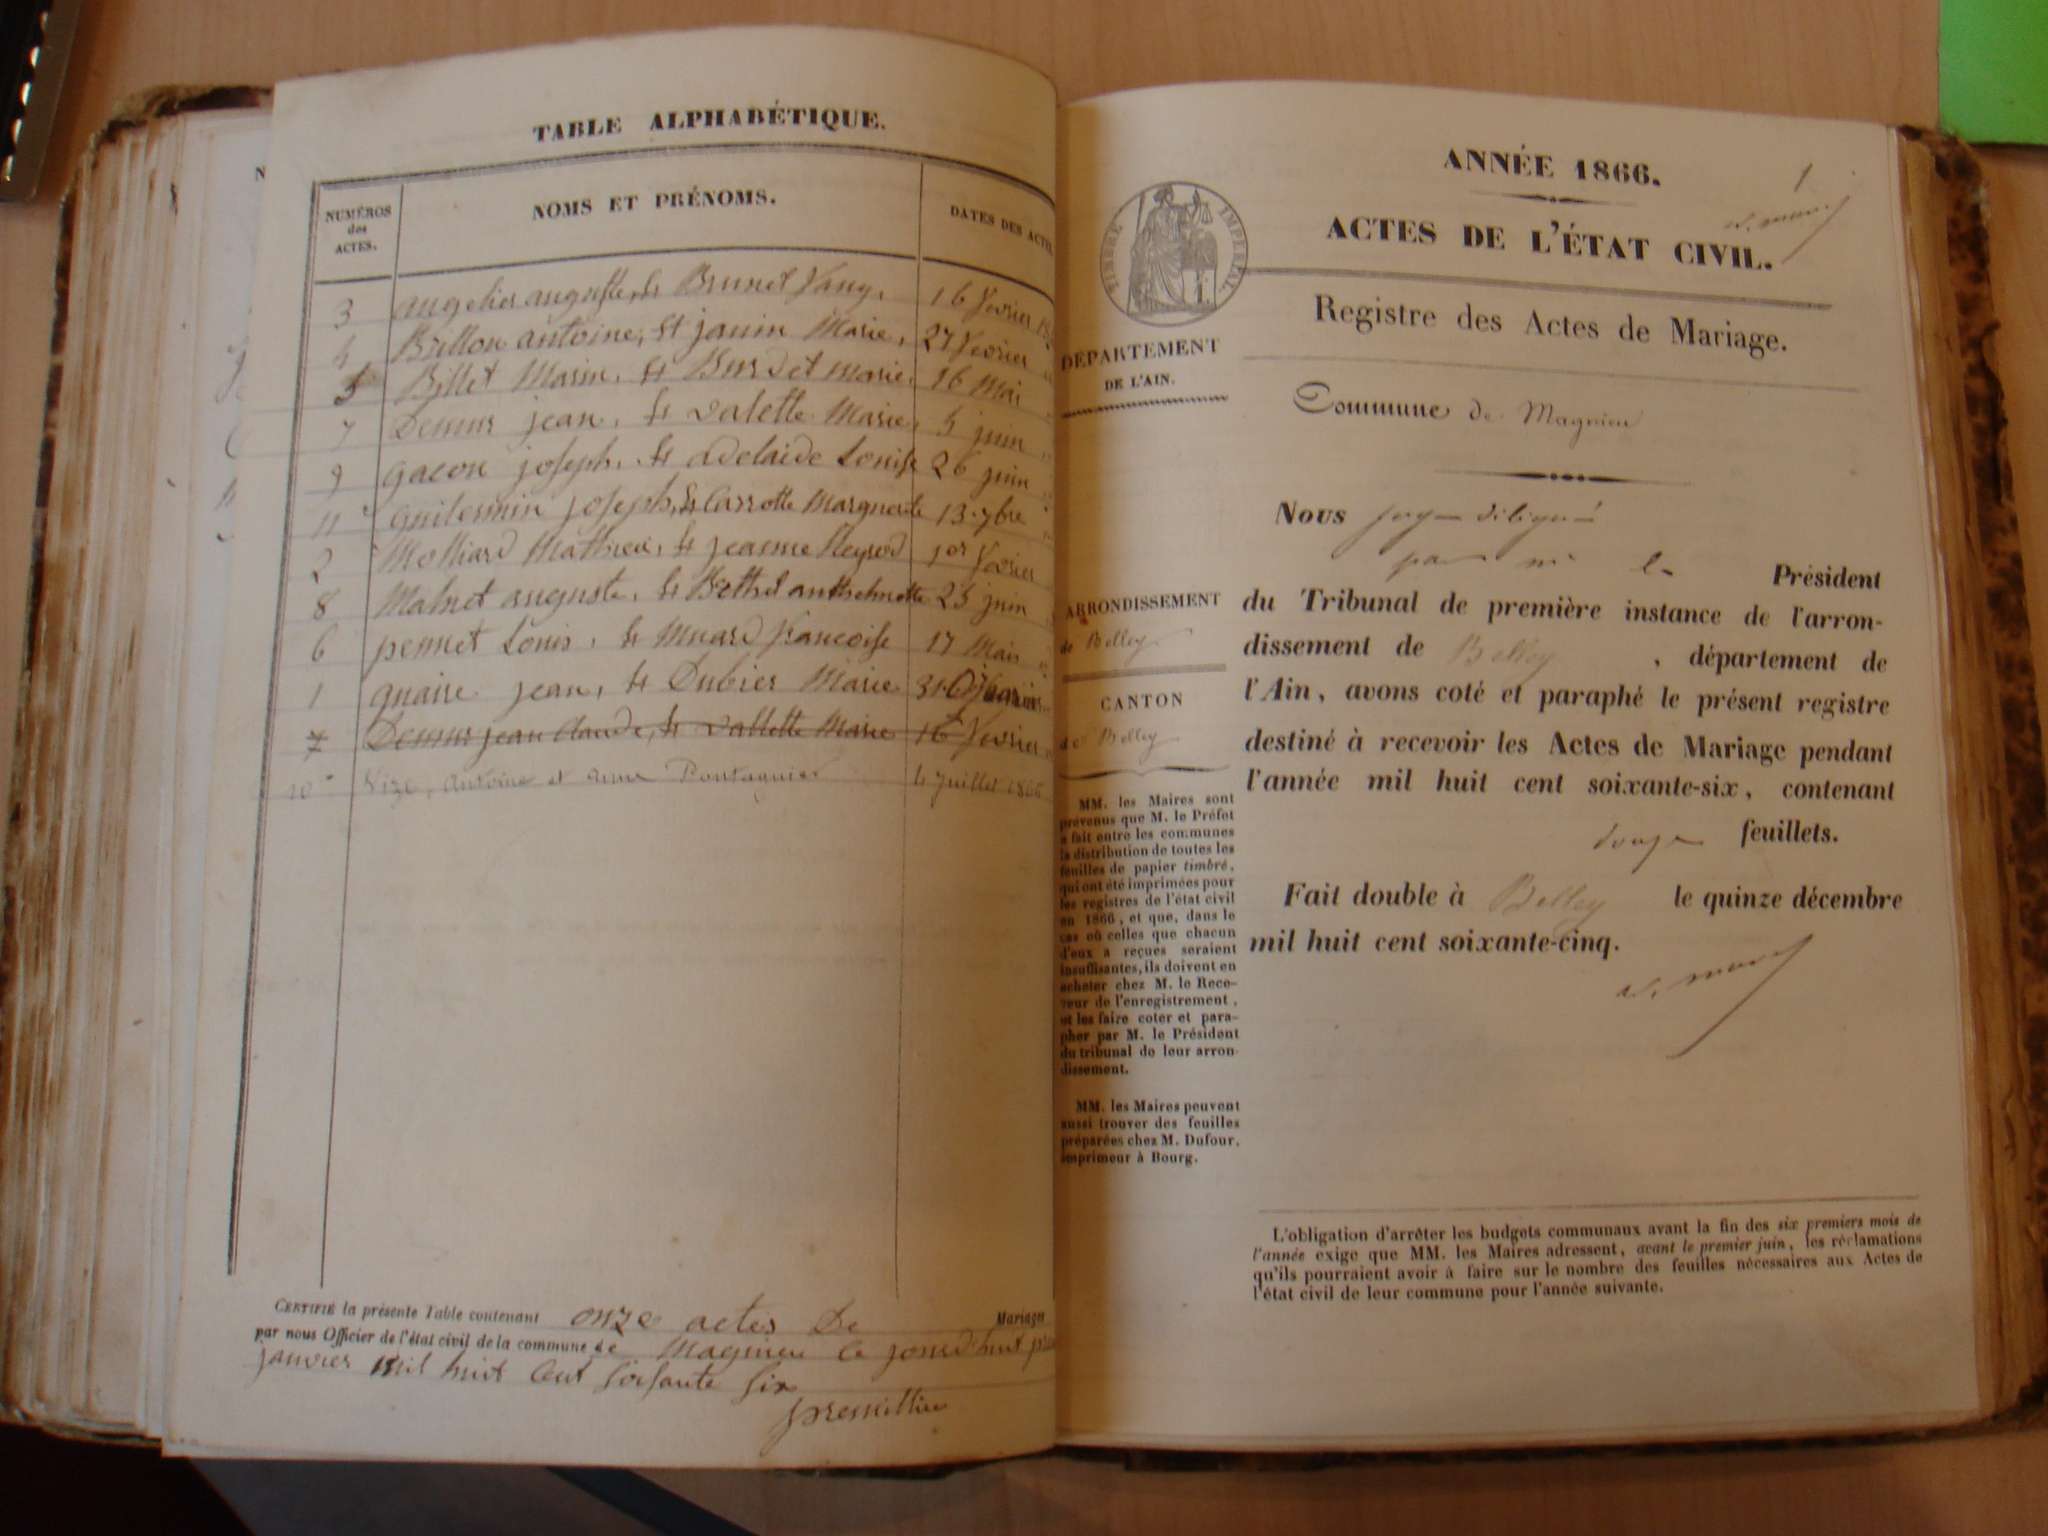 TABLE ALPHABÉTIQUE.
NUMÉROS des ACTES. NOMS ET PRÉNOMS. DATES DES ACTES
3 angelier auguste, et Brunet Fany, 16 fevrier
4 Brillon antoine, et janin Marie, 27 fevrier
5 Billet Marin, et Burdet marie, 16 Mai
7 Demur jean, et valette Marie, 5 juin
9 gacon joseph, et adelaide Louise 26 juin
11 guilermin joseph, et Carrotte Marguerite 13 7bre
2 Molliard Mathieu, et jeanne 1er fevrier
8 auguste, et Bethet anthelmette 25 juin
6 pennet Louis, et Muard francoise 17 Mai
1 jean, et Dubier Marie 31
7 Demur jean Claude, et vallette Marie 16 fevrier
10 Vize, Antoine et anne Pontagnier 4 Juillet 1866
CERTIFIÉ la présente Table contenant onze actes De Mariages
par nous Officier de l'état civil de la commune de Magnieu le jourd'huit
janvier mil huit Cent soisante six
ANNÉE 1866. 1
ACTES DE L'ÉTAT CIVIL.
TIMBRE IMPÉRIAL
Registre des Actes de Mariage.
DÉPARTEMENT
DE L'AIN.
Commune de Magnieu
Nous juge délégué
par M. le Président
ARRONDISSEMENT
de Belley
CANTON
de Belley
du Tribunal de première instance de l'arron-
dissement de Belley, département de
l'Ain, avons coté et paraphé le présent registre
destiné à recevoir les Actes de Mariage pendant
l'année mil huit cent soixante-six, contenant
douze feuillets.
Fait double à Belley le quinze décembre
mil huit cent soixante-cinq.
MM. les Maires sont
prévenus que M. le Préfet
a fait entre les communes
la distribution de toutes les
feuilles de papier timbré,
qui ont été imprimées pour
les registres de l'état civil
en 1866, et que, dans le
cas où celles que chacun
d'eux a reçues seraient
insuffisantes, ils doivent en
acheter chez M. le Rece-
veur de l'enregistrement,
et les faire coter et para-
pher par M. le Président
du tribunal de leur arron-
dissement.
MM. les Maires peuvent
aussi trouver des feuilles
préparées chez M. Dufour,
imprimeur à Bourg.
L'obligation d'arrêter les budgets communaux avant la fin des six premiers mois de
l'année exige que MM. les Maires adressent, avant le premier juin, les réclamations
qu'ils pourraient avoir à faire sur le nombre des feuilles nécessaires aux Actes de
l'état civil de leur commune pour l'année suivante.